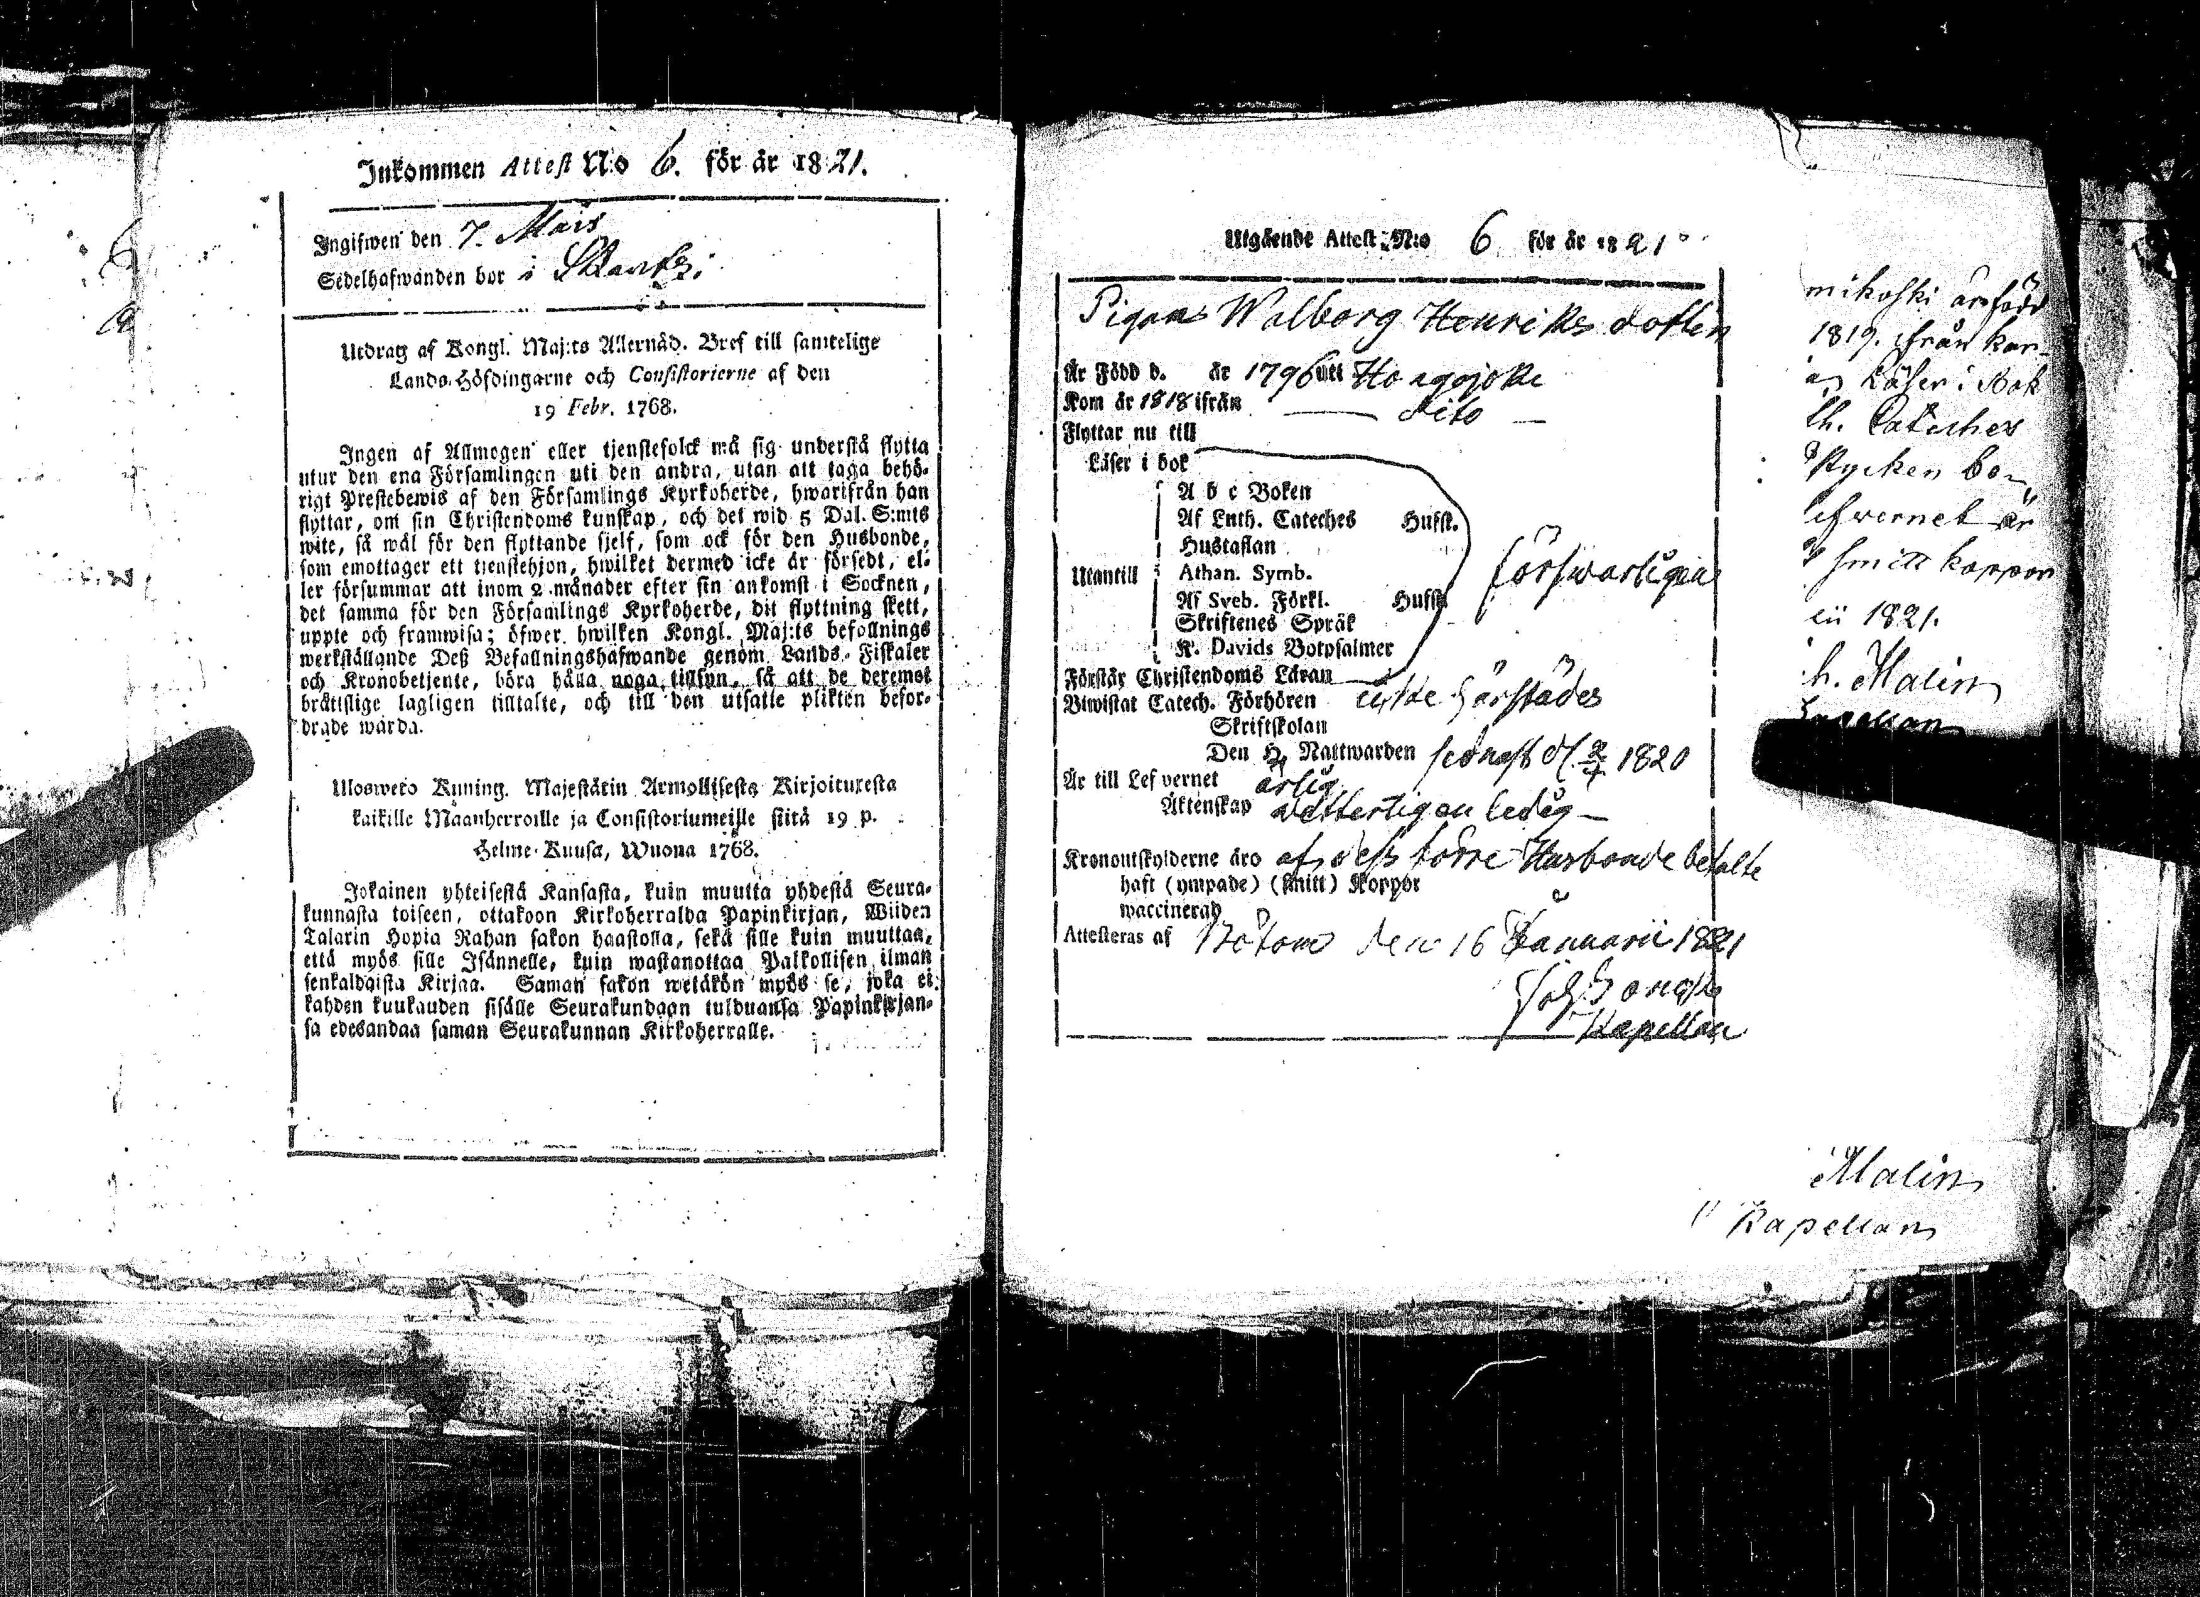 Inkommen Attest N:o 6. för år 1821.
Ingifwen den 7. Mars
Sedelhafwanden bor i
Utdrag af Kongl. Maj:ts Allernåd. Bref till samtelige
Lands-Höfdingarne och Consistorierne af den
19 Febr. 1768.
Ingen af Allmogen eller tjenstefolck må sig understå flytta
utur den ena Församlingen uti den andra, utan att taga behö-
rigt Prestebewis af den Församlings Kyrkoherde, hwarifrån han
flyttar, om sin Christendoms kunskap, och det wid 5 Dal. S:mts
wite, så wäl för den flyttande sjelf, som ock för den Husbonde,
som emottager ett tjenstehjon, hwilket dermed icke är försedt, el-
ler försummar att inom 2 månader efter sin ankomst i Socknen,
det samma för den Församlings Kyrkoherde, dit flyttning skett,
uppte och framwisa; öfwer hwilken Kongl. Maj:ts befallnings
werkställande Deß Befallningshafwande genom Lands-Fiskaler
och Kronobetjente, böra hålla noga tillsyn, så att de deremot
bråttslige lagligen tilltalte, och till den utsatte plikten befor-
drade warda.
Ulosweto Kuning. Majestätin Armollisesta Kirjoituxesta
kaikille Maanherroille ja Consistoriumeille siitä 19 p.
Helme-Kuusa, Wuona 1768.
Jokainen yhteisestä Kansasta, kuin muutta yhdestä Seura-
kunnasta toiseen, ottakoon Kirkoherralda Papinkirjan, Wiiden
Talarin Hopia Rahan sakon haastolla, sekä sille kuin muuttaa,
että myös sille Isännelle, kuin wastanottaa Palkollisen ilman
senkaldaista Kirjaa. Saman sakon wetäkön myös se, joka ei
kahden kuukauden sisälle Seurakundaan tulduansa Papinkirjan-
sa edesandaa saman Seurakunnan Kirkoherralle.
Utgående Attest N:o 6 för år 1821
Pigan Walborg Henriks dotter
Är Född d. år 1796 uti Hongojoki
Kom år 1818 ifrån dito
Flyttar nu till
Läser i bok
A b c Boken
Af Luth. Cateches Husst.
Hustaflan
Utantill Athan. Symb. försvarligen
Af Sveb. Förkl. Husst.
Skriftenes Språk
K. Davids Botpsalmer
Förstår Christendoms Läran
Biwistat Catech. Förhören härstädes
Skriftskolan
Den H. Nattwarden sednast d. 2/4 1820
Är till Lefvernet ärlig
Äktenskap ledig
Kronoutskylderne äro af deß förre Husbonde betalte
haft (ympade) (smitt) Koppor
waccinerad
Attesteras af Bötom den 16 Januarii 1821
Kapellan
mikoski är född
1819. ifrån
Läser i Bok
th. Cateches
efwernet är
smitt koppor
rii 1821.
h. Malin
Kapellan
Malin
Kapellan